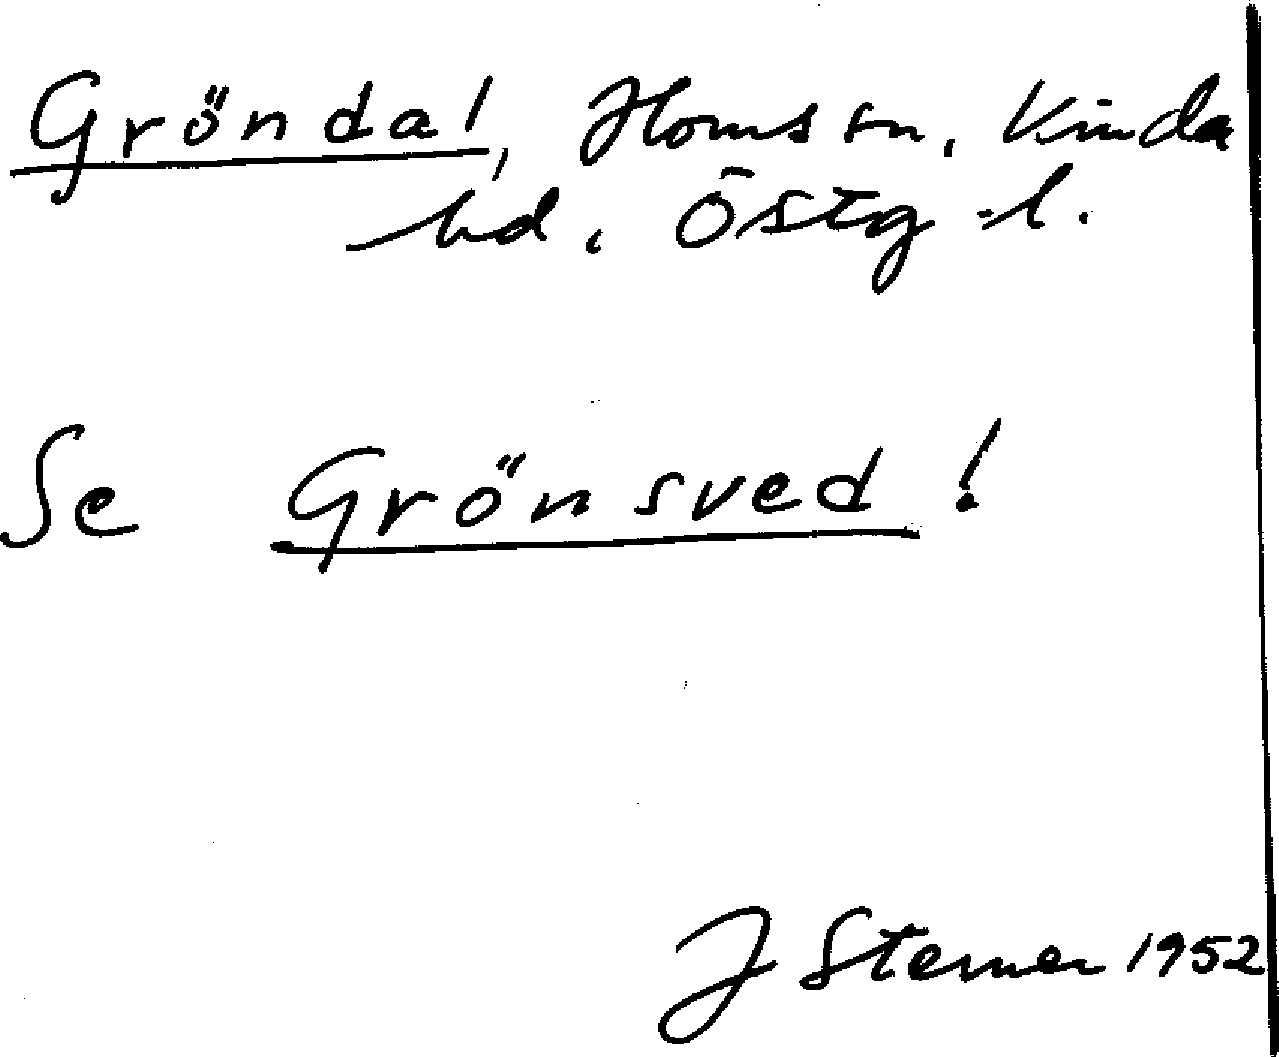 Gröndal, Horns sn. Kinda
hd. Östg. l.
Se Grönsved!
J Sterner 1952